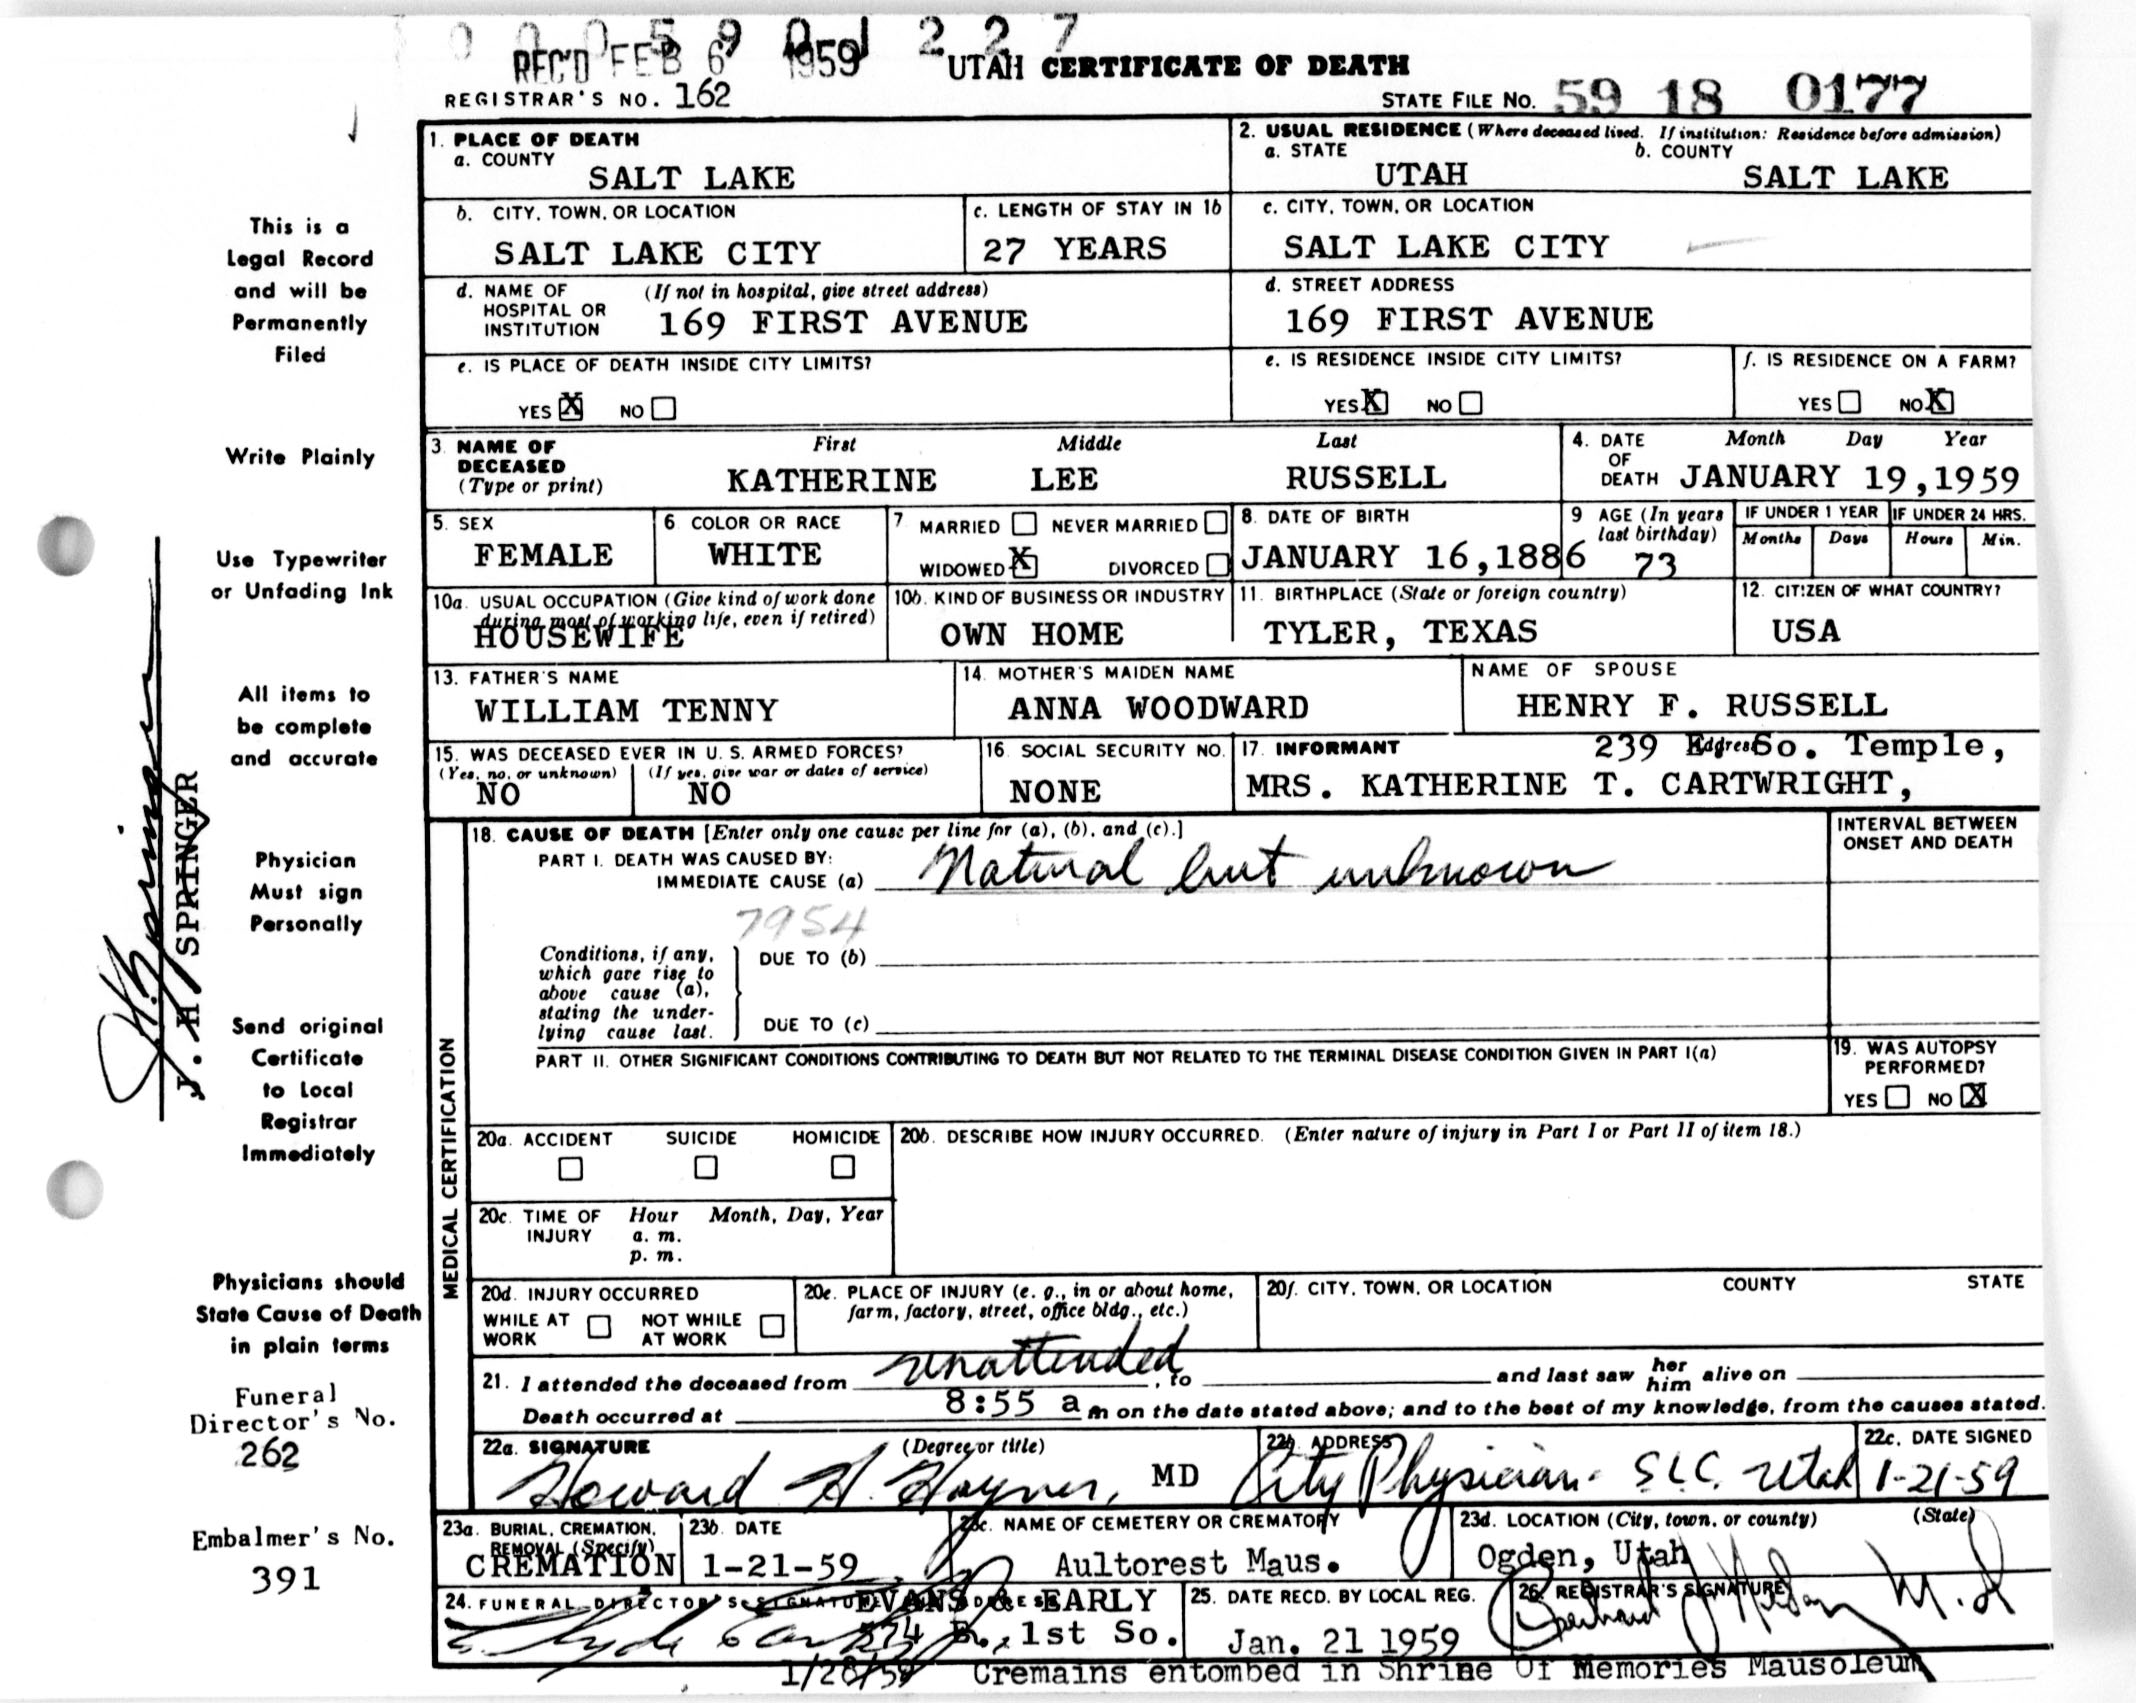 0 0 0 5 9 0 1 2 2 7
REC'D FEB 6 1959 UTAH CERTIFICATE OF DEATH
REGISTRAR'S NO. 162
STATE FILE NO. 59 18 0177
This is a
Legal Record
and will be
Permanently
Filed
Write Plainly
Use Typewriter
or Unfading Ink
All items to
be complete
and accurate
Physician
Must sign
Personally
Send original
Certificate
to Local
Registrar
Immediately
Physicians should
State Cause of Death
in plain terms
Funeral
Director's No.
262
Embalmer's No.
391
J. H. SPRINGER
1. PLACE OF DEATH
a. COUNTY
SALT LAKE
2. USUAL RESIDENCE (Where deceased lived. If institution: Residence before admission)
a. STATE b. COUNTY
UTAH SALT LAKE
b. CITY, TOWN, OR LOCATION
SALT LAKE CITY
c. LENGTH OF STAY IN 1b
27 YEARS
c. CITY, TOWN, OR LOCATION
SALT LAKE CITY
d. NAME OF (If not in hospital, give street address)
HOSPITAL OR
INSTITUTION 169 FIRST AVENUE
d. STREET ADDRESS
169 FIRST AVENUE
e. IS PLACE OF DEATH INSIDE CITY LIMITS?
YES X NO
e. IS RESIDENCE INSIDE CITY LIMITS?
YES X NO
f. IS RESIDENCE ON A FARM?
YES NO X
3. NAME OF First Middle Last
DECEASED
(Type or print) KATHERINE LEE RUSSELL
4. DATE Month Day Year
OF
DEATH JANUARY 19,1959
5. SEX
FEMALE
6 COLOR OR RACE
WHITE
7 MARRIED NEVER MARRIED
WIDOWED X DIVORCED
8. DATE OF BIRTH
JANUARY 16,1886
9 AGE (In years
last birthday)
73
IF UNDER 1 YEAR IF UNDER 24 HRS.
Months Days Hours Min.
10a. USUAL OCCUPATION (Give kind of work done
during most of working life, even if retired)
HOUSEWIFE
10b. KIND OF BUSINESS OR INDUSTRY
OWN HOME
11. BIRTHPLACE (State or foreign country)
TYLER, TEXAS
12. CITIZEN OF WHAT COUNTRY?
USA
13. FATHER'S NAME
WILLIAM TENNY
14. MOTHER'S MAIDEN NAME
ANNA WOODWARD
NAME OF SPOUSE
HENRY F. RUSSELL
15. WAS DECEASED EVER IN U. S. ARMED FORCES?
(Yes, no, or unknown) (If yes, give war or dates of service)
NO NO
16. SOCIAL SECURITY NO.
NONE
17. INFORMANT Address
239 E. So. Temple,
MRS. KATHERINE T. CARTWRIGHT,
MEDICAL CERTIFICATION
18. CAUSE OF DEATH [Enter only one cause per line for (a), (b), and (c).]
PART I. DEATH WAS CAUSED BY:
IMMEDIATE CAUSE (a) Natural but unknown
INTERVAL BETWEEN
ONSET AND DEATH
7954
Conditions, if any,
which gave rise to
above cause (a),
stating the under-
lying cause last.
DUE TO (b)
DUE TO (c)
PART II. OTHER SIGNIFICANT CONDITIONS CONTRIBUTING TO DEATH BUT NOT RELATED TO THE TERMINAL DISEASE CONDITION GIVEN IN PART I(a)
19. WAS AUTOPSY
PERFORMED?
YES NO X
20a. ACCIDENT SUICIDE HOMICIDE
20b. DESCRIBE HOW INJURY OCCURRED. (Enter nature of injury in Part I or Part II of item 18.)
20c. TIME OF Hour Month, Day, Year
INJURY a. m.
p. m.
20d. INJURY OCCURRED
WHILE AT NOT WHILE
WORK AT WORK
20e. PLACE OF INJURY (e. g., in or about home,
farm, factory, street, office bldg., etc.)
20f. CITY, TOWN, OR LOCATION COUNTY STATE
21. I attended the deceased from unattended, to and last saw her him alive on
Death occurred at 8:55 a m on the date stated above; and to the best of my knowledge, from the causes stated.
22a. SIGNATURE (Degree or title)
Howard H. Hayner, MD
22b. ADDRESS
City Physician. SLC. Utah
22c. DATE SIGNED
1-21-59
23a. BURIAL, CREMATION,
REMOVAL (Specify)
CREMATION
23b. DATE
1-21-59
23c. NAME OF CEMETERY OR CREMATORY
Aultorest Maus.
23d. LOCATION (City, town, or county) (State)
Ogden, Utah
24. FUNERAL DIRECTOR'S SIGNATURE ADDRESS
EVANS & EARLY
574 E., 1st So.
25. DATE RECD. BY LOCAL REG.
Jan. 21 1959
26. REGISTRAR'S SIGNATURE
M.D
1/28/59 Cremains entombed in Shrine Of Memories Mausoleum